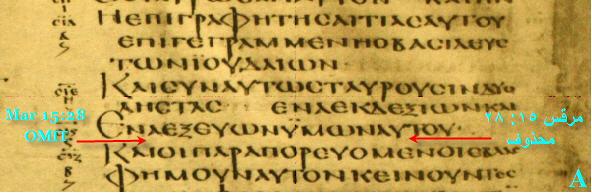 ΗΕΠΙΓΡΑΦΗΤΗϹΑΙΤΙΑϹΑΥΤΟΥ
ΕΠΙΓΕΓΡΑΜΜΕΝΗΟΒΑϹΙΛΕΥϹ
ΤΩΝΪΟΥΔΑΙΩΝ
ΚΑΙϹΥΝΑΥΤΩϹΤΑΥΡΟΥϹΙΝΔΥΟ
ΛΗϹΤΑϹ ΕΝΑΕΚΔΕΞΙΩΝΚΑΙ
Mar 15:28
OMIT
ΕΝΑΕΞΕΥΩΝΥΜΩΝΑΥΤΟΥ·
مرقس ١٥: ٢٨
محذوف
ΚΑΙΟΙΠΑΡΑΠΟΡΕΥΟΜΕΝΟΙΕΒΛΑϹ
ΦΗΜΟΥΝΑΥΤΟΝΚΕΙΝΟΥΝΤΕϹ
A